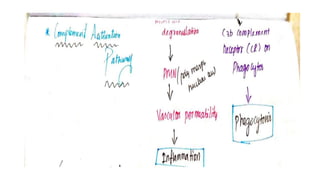 * Complement Activation
Pathways
degranulation
PMN (poly morpho
nuclear
Vascular permeability
Inflammation
C3b complement
Receptor (CR) on
Phagocytes
Phagocytosis